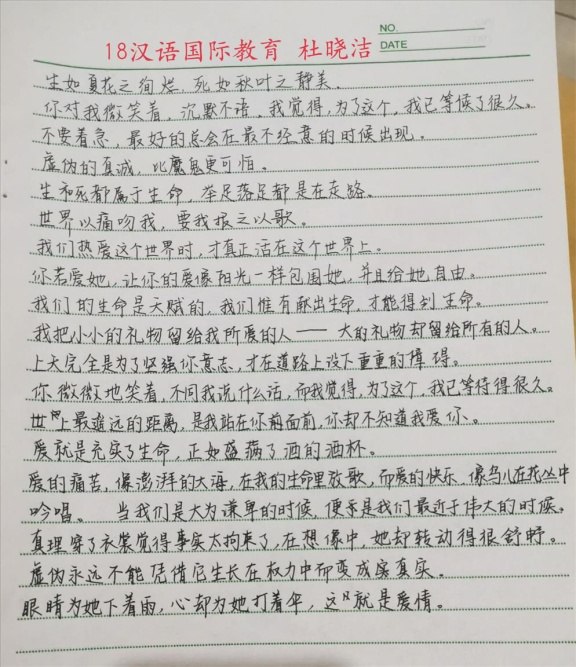 NO.
18汉语国际教育 杜晓洁 DATE
生如夏花之绚烂，死如秋叶之静美.
你对我微笑着，沉默不语，我觉得，为了这个，我已等候了很久。
不要着急，最好的总会在最不经意的时候出现。
虚伪的真诚，比魔鬼更可怕。
生和死都属于生命，举足落足都是在走路。
世界以痛吻我，要我报之以歌。
我们热爱这个世界时，才真正活在这个世界上。
你若爱她，让你的爱像阳光一样包围她，并且给她自由。
我们的生命是天赋的，我们惟有献出生命，才能得到生命。
我把小小的礼物留给我所爱的人——大的礼物却留给所有的人。
上天完全是为了坚强你意志，才在道路上设下重重的障碍。
你微微地笑着，不同我说什么话，而我觉得，为了这个，我已等待得很久。
世间上最遥远的距离，是我站在你前面前，你却不知道我爱你。
爱就是充实了生命，正如盛满了酒的酒杯。
爱的痛苦，像澎湃的大海，在我的生命里放歌，而爱的快乐，像鸟儿在花丛中
吟唱。 当我们是大为谦卑的时候，便是我们最近于伟大的时候。
真理穿了衣裳觉得事实太拘束了，在想像中，她却转动得很舒畅。
虚伪永远不能凭借它生长在权力中而变成真实。
眼睛为她下着雨，心却为她打着伞，这就是爱情。